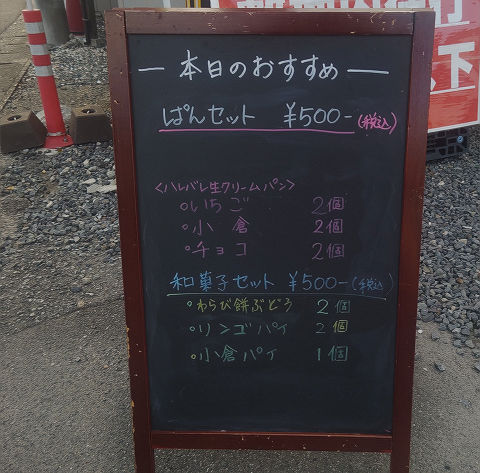 本日のおすすめ
ぱんセット ¥500-(税込)
<ハレバレ生クリームパン>
○いちご 2個
○小倉 2個
○チョコ 2個
和菓子セット ¥500-(税込)
○わらび餅ぶどう 2個
○リンゴパイ 2個
○小倉パイ 1個